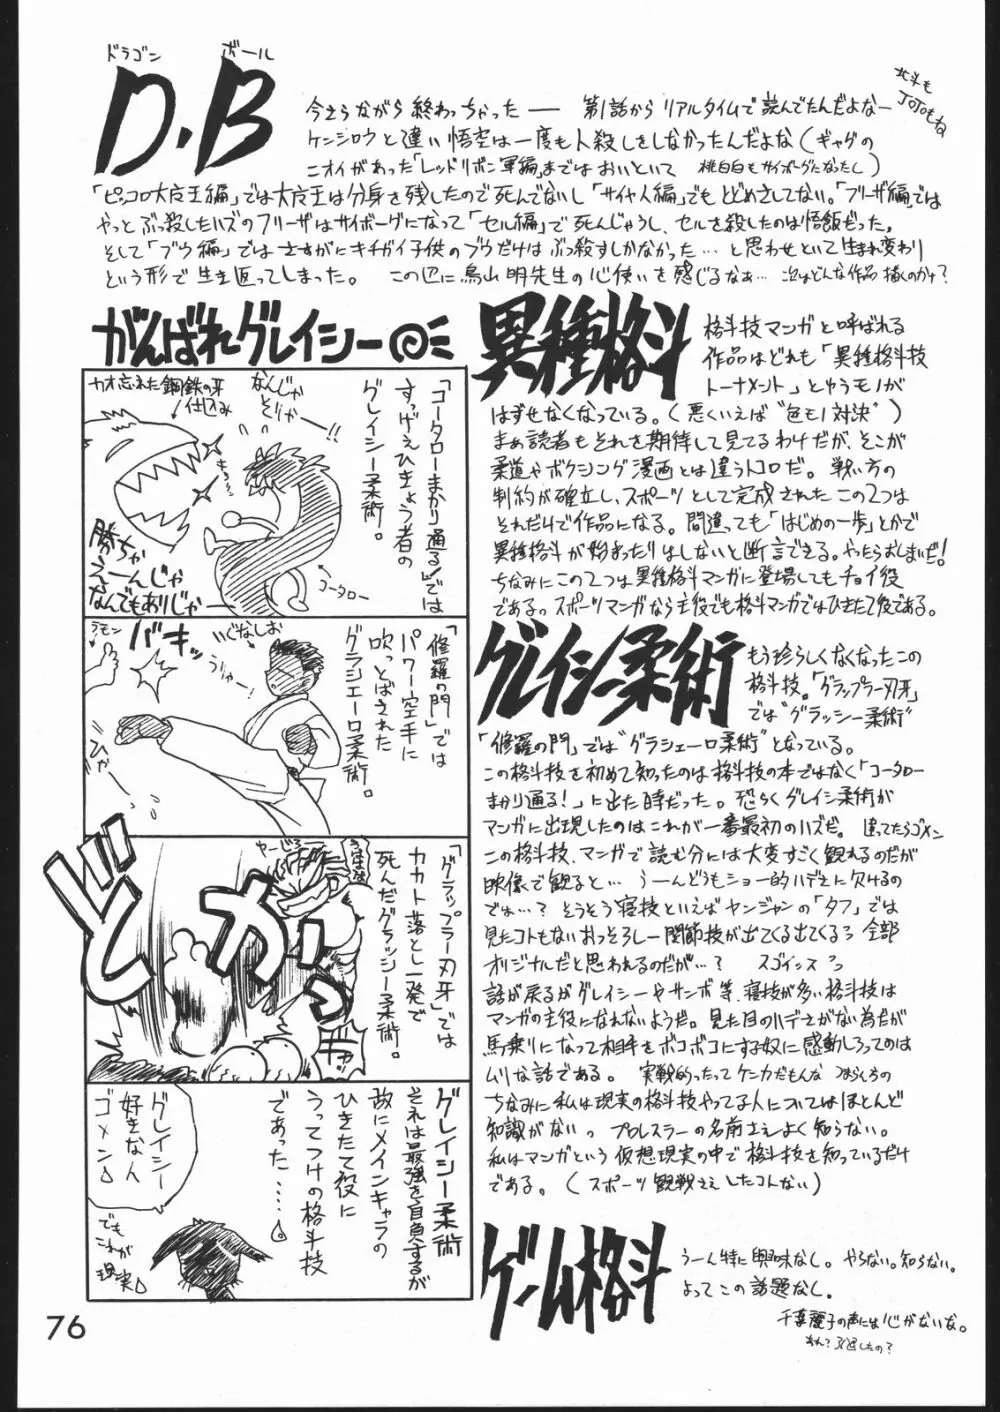 ドラゴン ボール
D.B
北斗も
JOJOもね
今さらながら終わっちゃった―― 第1話からリアルタイムで読んでたんだよなー
ケンジロウと違い悟空は一度も人殺しをしなかったんだよな(ギャグの
ニオイがあった「レッドリボン軍編」まではおいといて 桃白白もサイボーグになったし)
「ピッコロ大魔王編」では大魔王は分身を残したので死んでないし「サイヤ人編」でもとどめさしてない。「フリーザ編」では
やっとぶっ殺したハズのフリーザはサイボーグになって「セル編」で死んじゃうし、セルを殺したのは悟飯だった。
そして「ブウ編」ではさすがにキチガイ子供のブウだけはぶっ殺すしかなかった…と思わせといて生まれ変わり
という形で生き返ってしまった。 この辺に鳥山明先生の心使いを感じるなぁ… 次はどんな作品描くのかナ?
がんばれグレイシー
カオ忘れた鋼鉄の牙
仕込み
なんじゃ
そりゃー!!
「コータローまかり通る!」では
すっげえひきょう者の
グレイシー柔術。
勝ちゃ
えーんじゃ
なんでもありじゃー
コータロー
ラモン
バキッ
いぐなしお
「修羅の門」では
パワー空手に
吹っとばされた
グラシエーロ柔術。
ひゃー
どかっ
「グラップラー刃牙」では
カカト落とし一発で
死んだグラッシー柔術。
グレイシー柔術
それは最強を自負するが
故にメインキャラの
ひきたて役に
うってつけの格斗技
であった……。
グレイシー
好きな人
ゴメン
でも
これが
現実
異種格斗
格斗技マンガと呼ばれる
作品はどれも「異種格斗技
トーナメント」とゆうモノが
はずせなくなっている。(悪くいえば"色もノ対決")
まぁ読者もそれを期待して見てるわけだが、そこが
柔道やボクシング漫画とは違うトコロだ。戦い方の
制約が確立し、スポーツとして完成されたこの2つは
それだけで作品になる。間違っても「はじめの一歩」とかで
異種格斗が始まったりはしないと断言できる。やったらおしまいだ!
ちなみにこの2つは異種格斗マンガに登場してもチョイ役
である。スポーツマンガなら主役でも格斗マンガではひきたて役である。
グレイシー柔術
もう珍らしくなくなったこの
格斗技。「グラップラー刃牙」
では"グラッシー柔術"
「修羅の門」では"グラシエーロ柔術"となっている。
この格斗技を初めて知ったのは格斗技の本ではなく「コータロー
まかり通る!」に出た時だった。恐らくグレイシー柔術が
マンガに出現したのはこれが一番最初のハズだ。違ってたらゴメン
この格斗技、マンガで読む分には大変すごく観れるのだが
映像で観ると… うーんどうもショー的ハデさに欠けるの
では…? そうそう寝技といえばヤンジャンの「タフ」では
見たコトもないおっそろしー関節技が出てくる出てくる 全部
オリジナルだと思われるのだが…? スゴインスっ
話が戻るがグレイシーやサンボ等、寝技が多い格斗技は
マンガの主役になれないようだ。見た目のハデさがない為だが
馬乗りになって相手をボコボコにする奴に感動しろってのは
ムリな話である。 実戦的ったってケンカだもんな
ちなみに私は現実の格斗技やってる人についてはほとんど
知識がない。プロレスラーの名前さえよく知らない。
私はマンガという仮想現実の中で格斗技を知っているだけ
である。(スポーツ観戦さえしたコトない)
ゲーム格斗
うーん特に興味なし。やらない。知らない。
よってこの話題なし。
千葉麗子の声には心がないな。
あれ?引退したの?
76